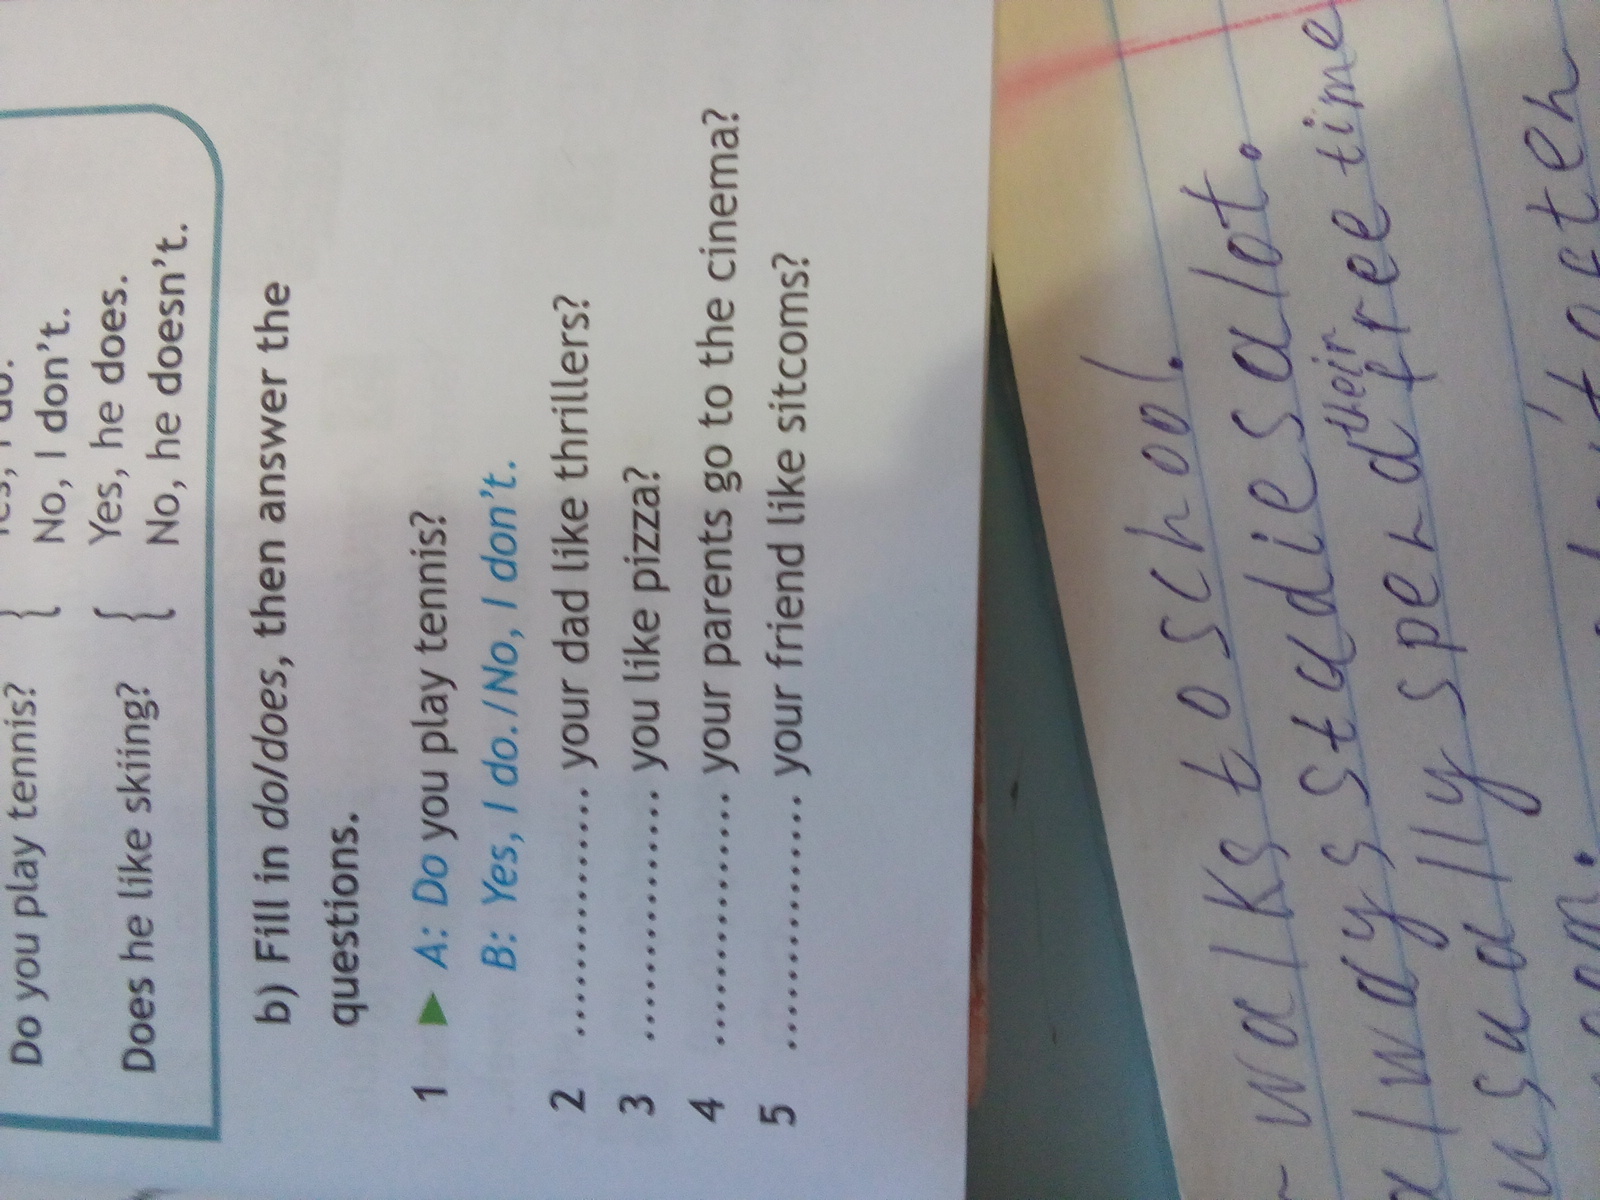 Do you play tennis?
No, I don't.
Does he like skiing?
Yes, he does.
No, he doesn't.
b) Fill in do/does, then answer the
questions.
1 ▶ A: Do you play tennis?
B: Yes, I do./No, I don't.
2 .............. your dad like thrillers?
3 .............. you like pizza?
4 .............. your parents go to the cinema?
5 .............. your friend like sitcoms?
walks to school.
always studies a lot.
usually spend their free time
often